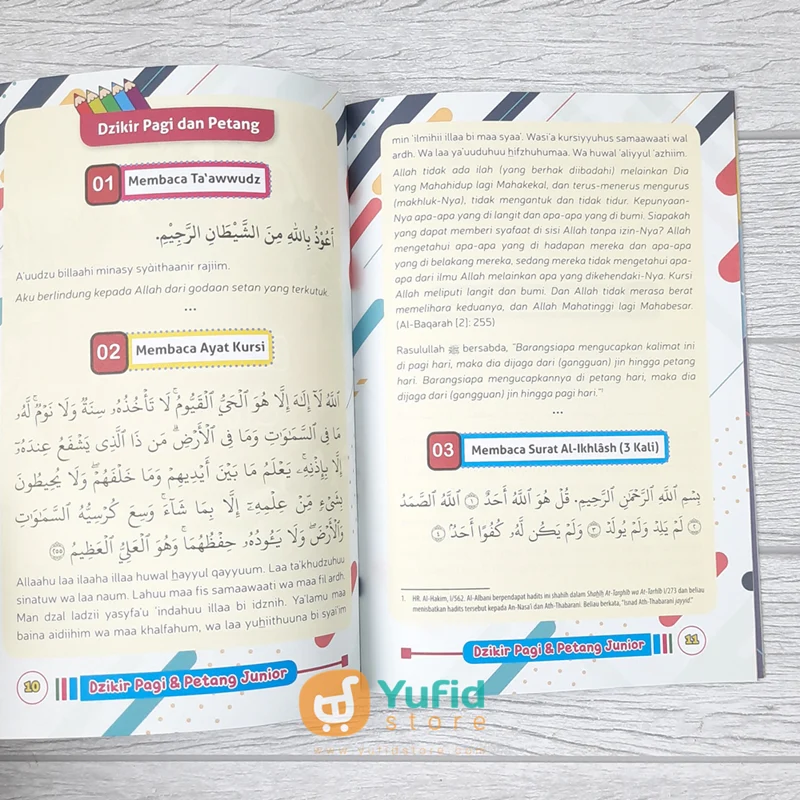 Dzikir Pagi dan Petang
01 Membaca Ta'awwudz
أَعُوْذُ بِاللهِ مِنَ الشَّيْطَانِ الرَّجِيْمِ.
A'uudzu billaahi minasy syàithaanir rajiim.
Aku berlindung kepada Allah dari godaan setan yang terkutuk.
...
02 Membaca Ayat Kursi
ٱللَّهُ لَآ إِلَٰهَ إِلَّا هُوَ ٱلْحَىُّ ٱلْقَيُّومُ ۚ لَا تَأْخُذُهُۥ سِنَةٌ وَلَا نَوْمٌ ۚ لَّهُۥ
مَا فِى ٱلسَّمَٰوَٰتِ وَمَا فِى ٱلْأَرْضِ ۗ مَن ذَا ٱلَّذِى يَشْفَعُ عِندَهُۥٓ
إِلَّا بِإِذْنِهِۦ ۚ يَعْلَمُ مَا بَيْنَ أَيْدِيهِمْ وَمَا خَلْفَهُمْ ۖ وَلَا يُحِيطُونَ
بِشَىْءٍ مِّنْ عِلْمِهِۦٓ إِلَّا بِمَا شَآءَ ۚ وَسِعَ كُرْسِيُّهُ ٱلسَّمَٰوَٰتِ
وَٱلْأَرْضَ ۖ وَلَا يَـُٔودُهُۥ حِفْظُهُمَا ۚ وَهُوَ ٱلْعَلِىُّ ٱلْعَظِيمُ ٢٥٥
Allaahu laa ilaaha illaa huwal hayyul qayyuum. Laa ta'khudzuhuu
sinatuw wa laa naum. Lahuu maa fis samaawaati wa maa fil ardh.
Man dzal ladzii yasyfa'u 'indahuu illaa bi idznih. Ya'lamu maa
baina aidiihim wa maa khalfahum, wa laa yuhiithuuna bi syai'im
10 Dzikir Pagi & Petang Junior
min 'ilmihii illaa bi maa syaa'. Wasi'a kursiyyuhus samaawaati wal
ardh. Wa laa ya'uuduhuu hifzhuhumaa. Wa huwal 'aliyyul 'azhiim.
Allah tidak ada ilah (yang berhak diibadahi) melainkan Dia
Yang Mahahidup lagi Mahakekal, dan terus-menerus mengurus
(makhluk-Nya), tidak mengantuk dan tidak tidur. Kepunyaan-
Nya apa-apa yang di langit dan apa-apa yang di bumi. Siapakah
yang dapat memberi syafaat di sisi Allah tanpa izin-Nya? Allah
mengetahui apa-apa yang di hadapan mereka dan apa-apa
yang di belakang mereka, sedang mereka tidak mengetahui apa-
apa dari ilmu Allah melainkan apa yang dikehendaki-Nya. Kursi
Allah meliputi langit dan bumi. Dan Allah tidak merasa berat
memelihara keduanya, dan Allah Mahatinggi lagi Mahabesar.
(Al-Baqarah [2]: 255)
Rasulullah ﷺ bersabda, "Barangsiapa mengucapkan kalimat ini
di pagi hari, maka dia dijaga dari (gangguan) jin hingga petang
hari. Barangsiapa mengucapkannya di petang hari, maka dia
dijaga dari (gangguan) jin hingga pagi hari."¹
...
03 Membaca Surat Al-Ikhlâsh (3 Kali)
بِسْمِ اللَّهِ الرَّحْمَٰنِ الرَّحِيمِ. قُلْ هُوَ ٱللَّهُ أَحَدٌ ١ ٱللَّهُ ٱلصَّمَدُ
٢ لَمْ يَلِدْ وَلَمْ يُولَدْ ٣ وَلَمْ يَكُن لَّهُۥ كُفُوًا أَحَدٌۢ ٤
1. HR. Al-Hakim, I/562. Al-Albani berpendapat hadits ini shahih dalam Shahîh At-Targhîb wa At-Tarhîb I/273 dan beliau
menisbatkan hadits tersebut kepada An-Nasa'i dan Ath-Thabarani. Beliau berkata, "Isnad Ath-Thabarani jayyid."
Dzikir Pagi & Petang Junior 11
Yufid
store
www.yufidstore.com